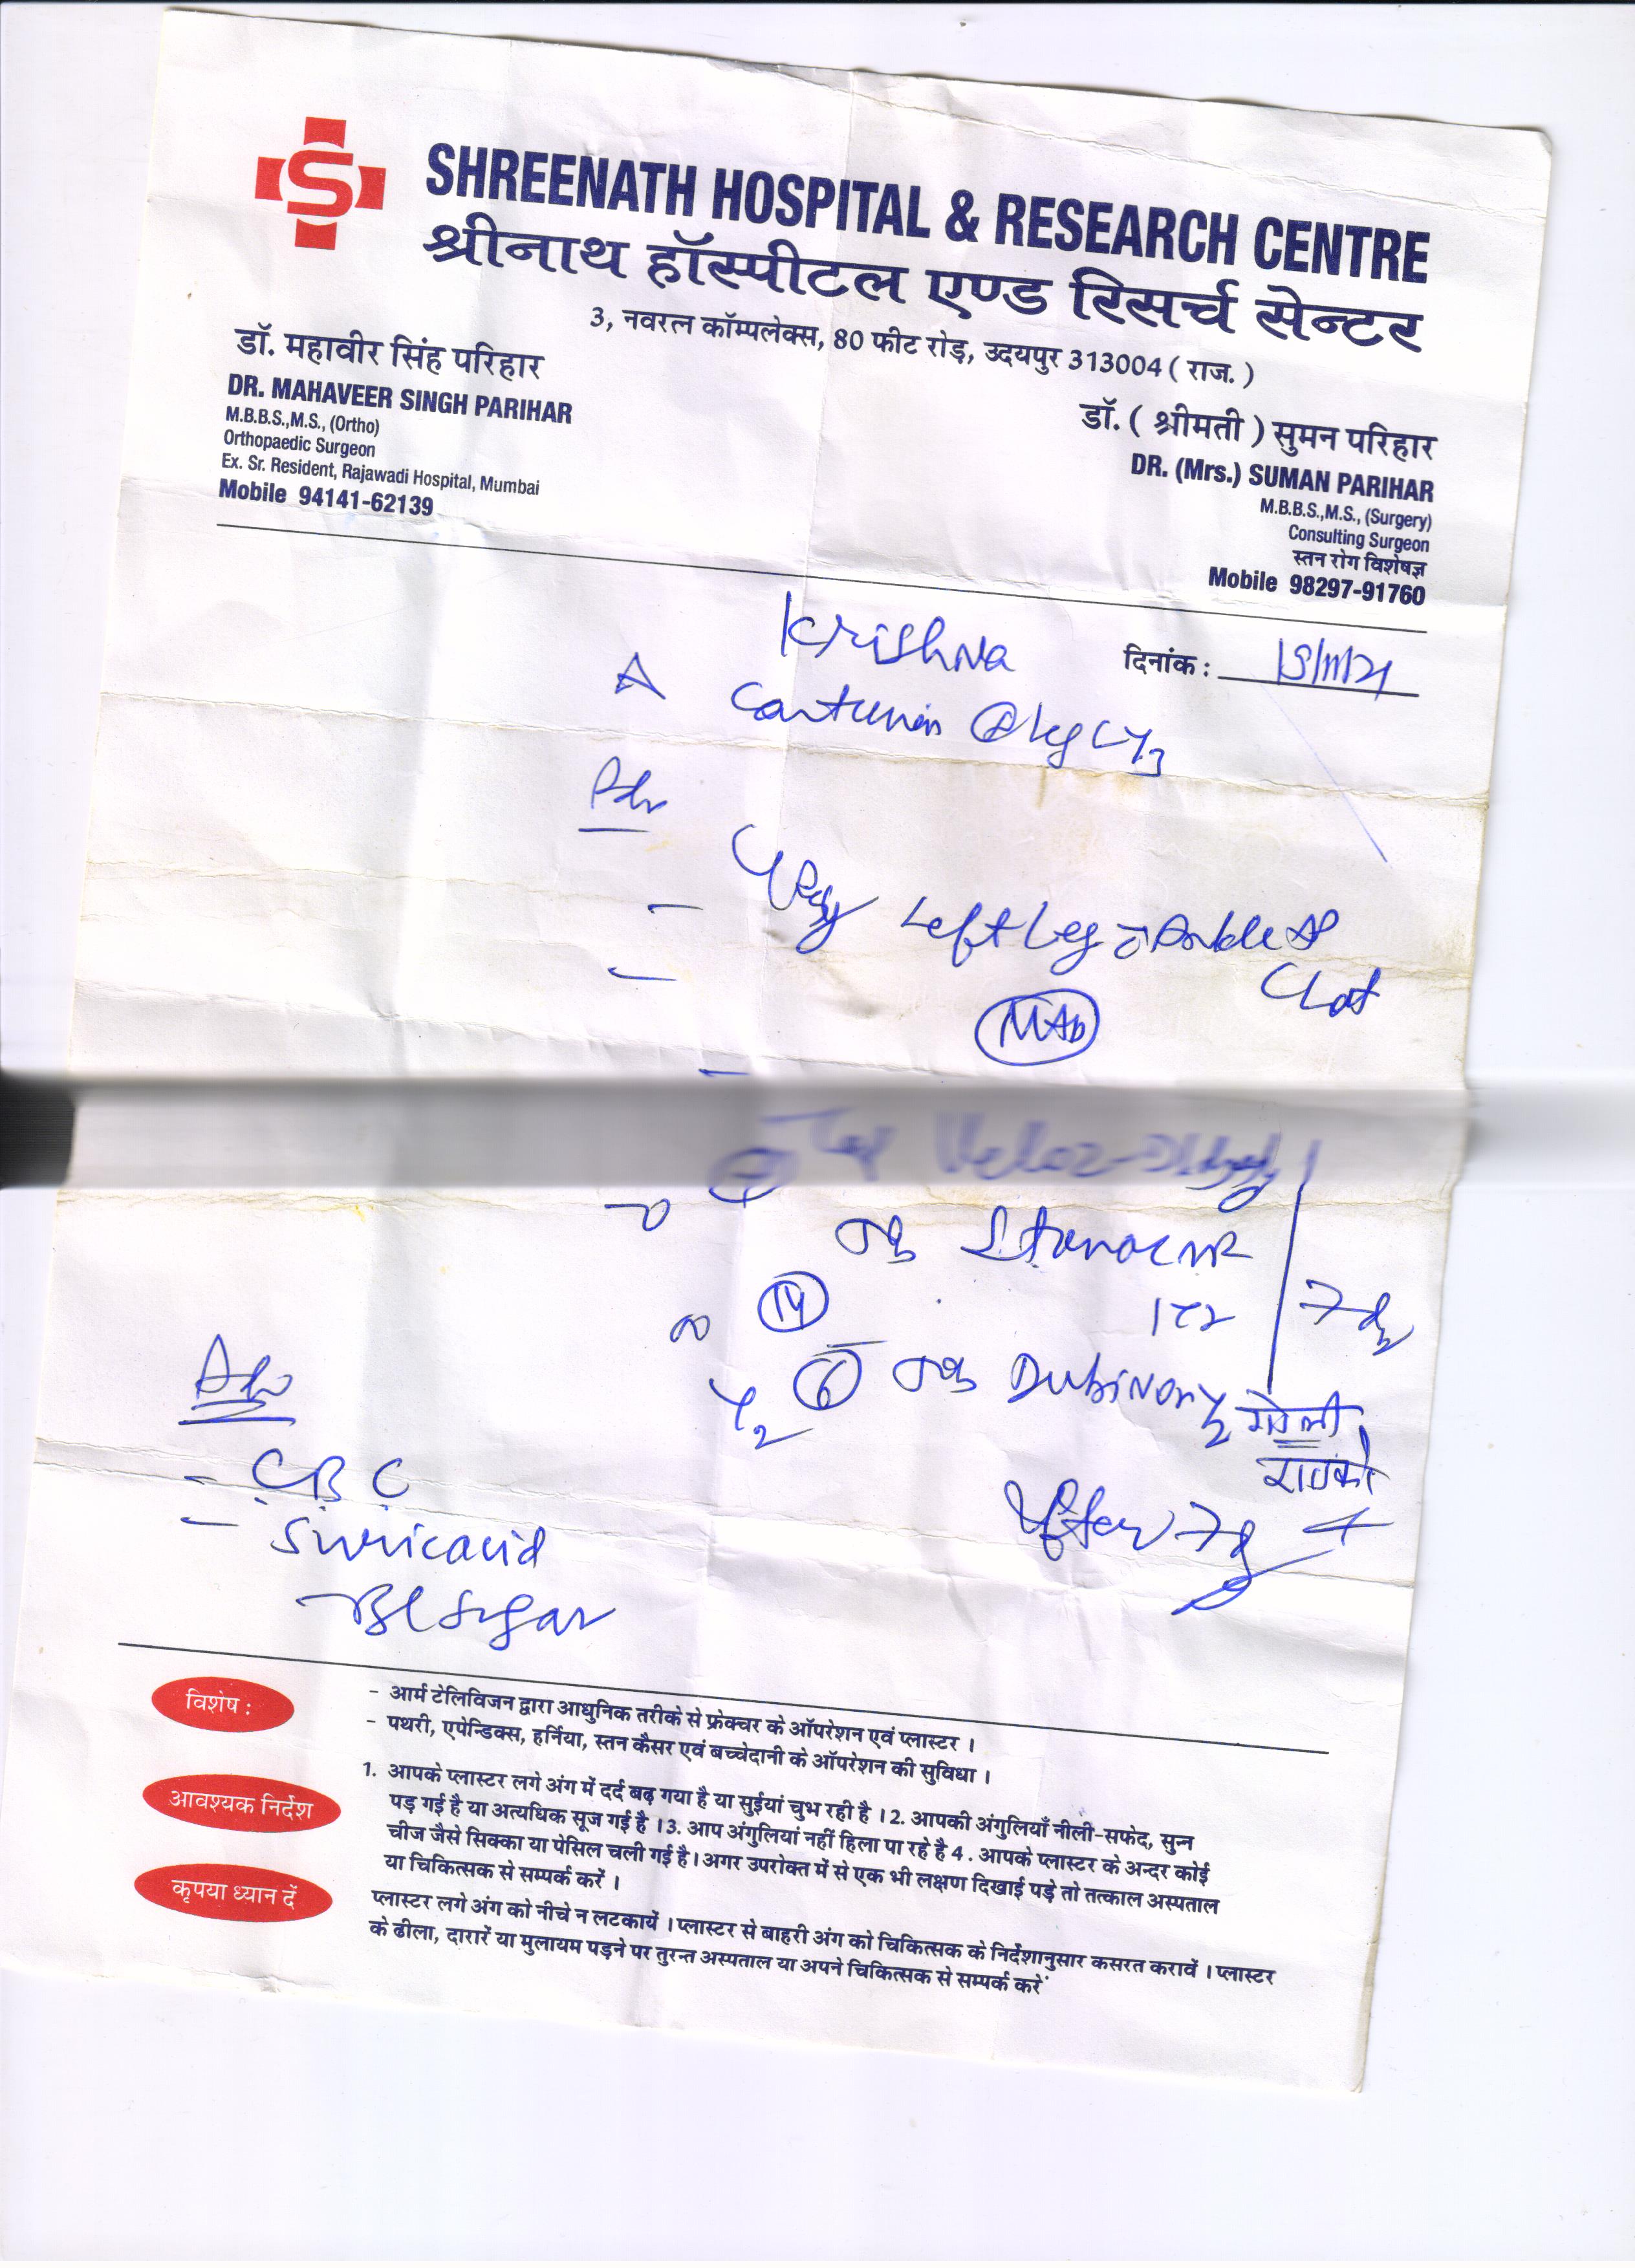 SHREENATH HOSPITAL & RESEARCH CENTRE
श्रीनाथ हॉस्पीटल एण्ड रिसर्च सेन्टर
3, नवरत्न कॉम्पलेक्स, 80 फीट रोड़, उदयपुर 313004 ( राज. )
डॉ. महावीर सिंह परिहार
DR. MAHAVEER SINGH PARIHAR
M.B.B.S.,M.S., (Ortho)
Orthopaedic Surgeon
Ex. Sr. Resident, Rajawadi Hospital, Mumbai
Mobile 94141-62139
डॉ. ( श्रीमती ) सुमन परिहार
DR. (Mrs.) SUMAN PARIHAR
M.B.B.S.,M.S., (Surgery)
Consulting Surgeon
स्तन रोग विशेषज्ञ
Mobile 98297-91760
Krishna
दिनांक :
Leg
Adv
Left Leg Ankle AP
Lat
14
6
गोली
रातको
Adv
- CBC
- S. uric acid
Bl Sugar
विशेष :
- आर्म टेलिविजन द्वारा आधुनिक तरीके से फ्रेक्चर के ऑपरेशन एवं प्लास्टर ।
- पथरी, एपेन्डिक्स, हर्निया, स्तन कैसर एवं बच्चेदानी के ऑपरेशन की सुविधा ।
आवश्यक निर्देश
1. आपके प्लास्टर लगे अंग में दर्द बढ़ गया है या सुईयां चुभ रही है । 2. आपकी अंगुलियाँ नीली-सफेद, सुन्न
पड़ गई है या अत्यधिक सूज गई है । 3. आप अंगुलियां नहीं हिला पा रहे है 4. आपके प्लास्टर के अन्दर कोई
चीज जैसे सिक्का या पेसिल चली गई है। अगर उपरोक्त में से एक भी लक्षण दिखाई पड़े तो तत्काल अस्पताल
या चिकित्सक से सम्पर्क करें ।
कृपया ध्यान दें
प्लास्टर लगे अंग को नीचे न लटकायें । प्लास्टर से बाहरी अंग को चिकित्सक के निर्देशानुसार कसरत करावें । प्लास्टर
के ढीला, दारारें या मुलायम पड़ने पर तुरन्त अस्पताल या अपने चिकित्सक से सम्पर्क करें